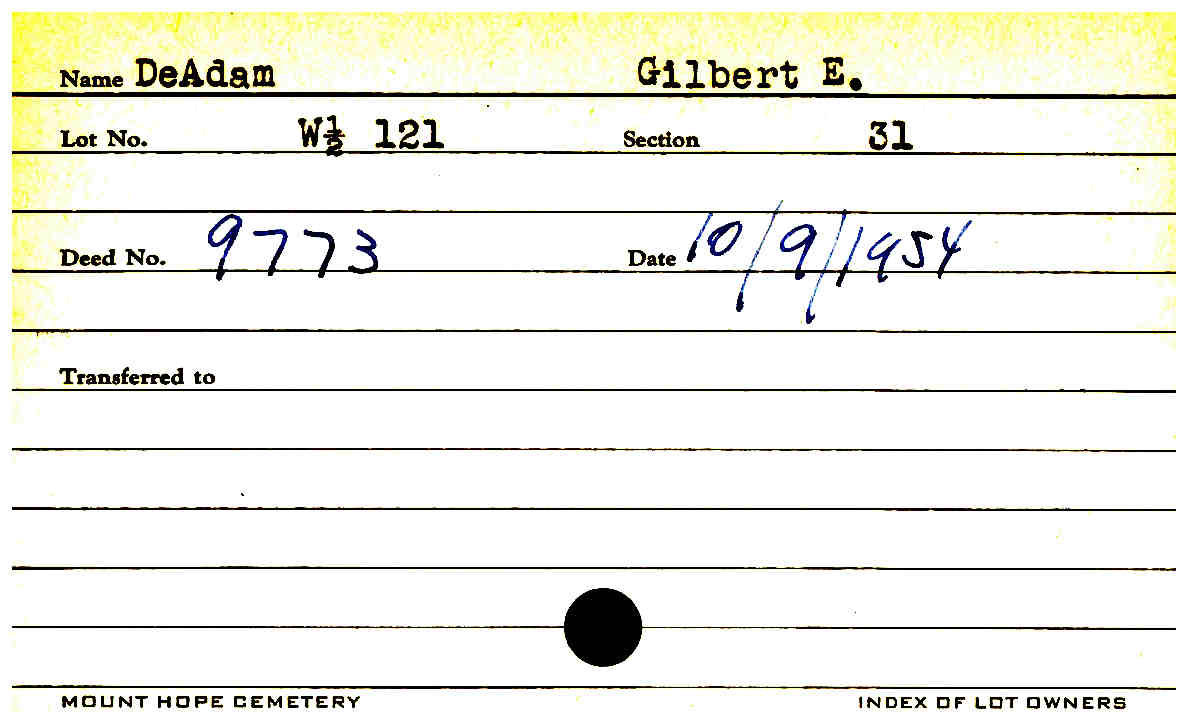 Name DeAdam Gilbert E.
Lot No. W½ 121 Section 31
Deed No. 9773 Date 10/9/1954
Transferred to
MOUNT HOPE CEMETERY INDEX OF LOT OWNERS